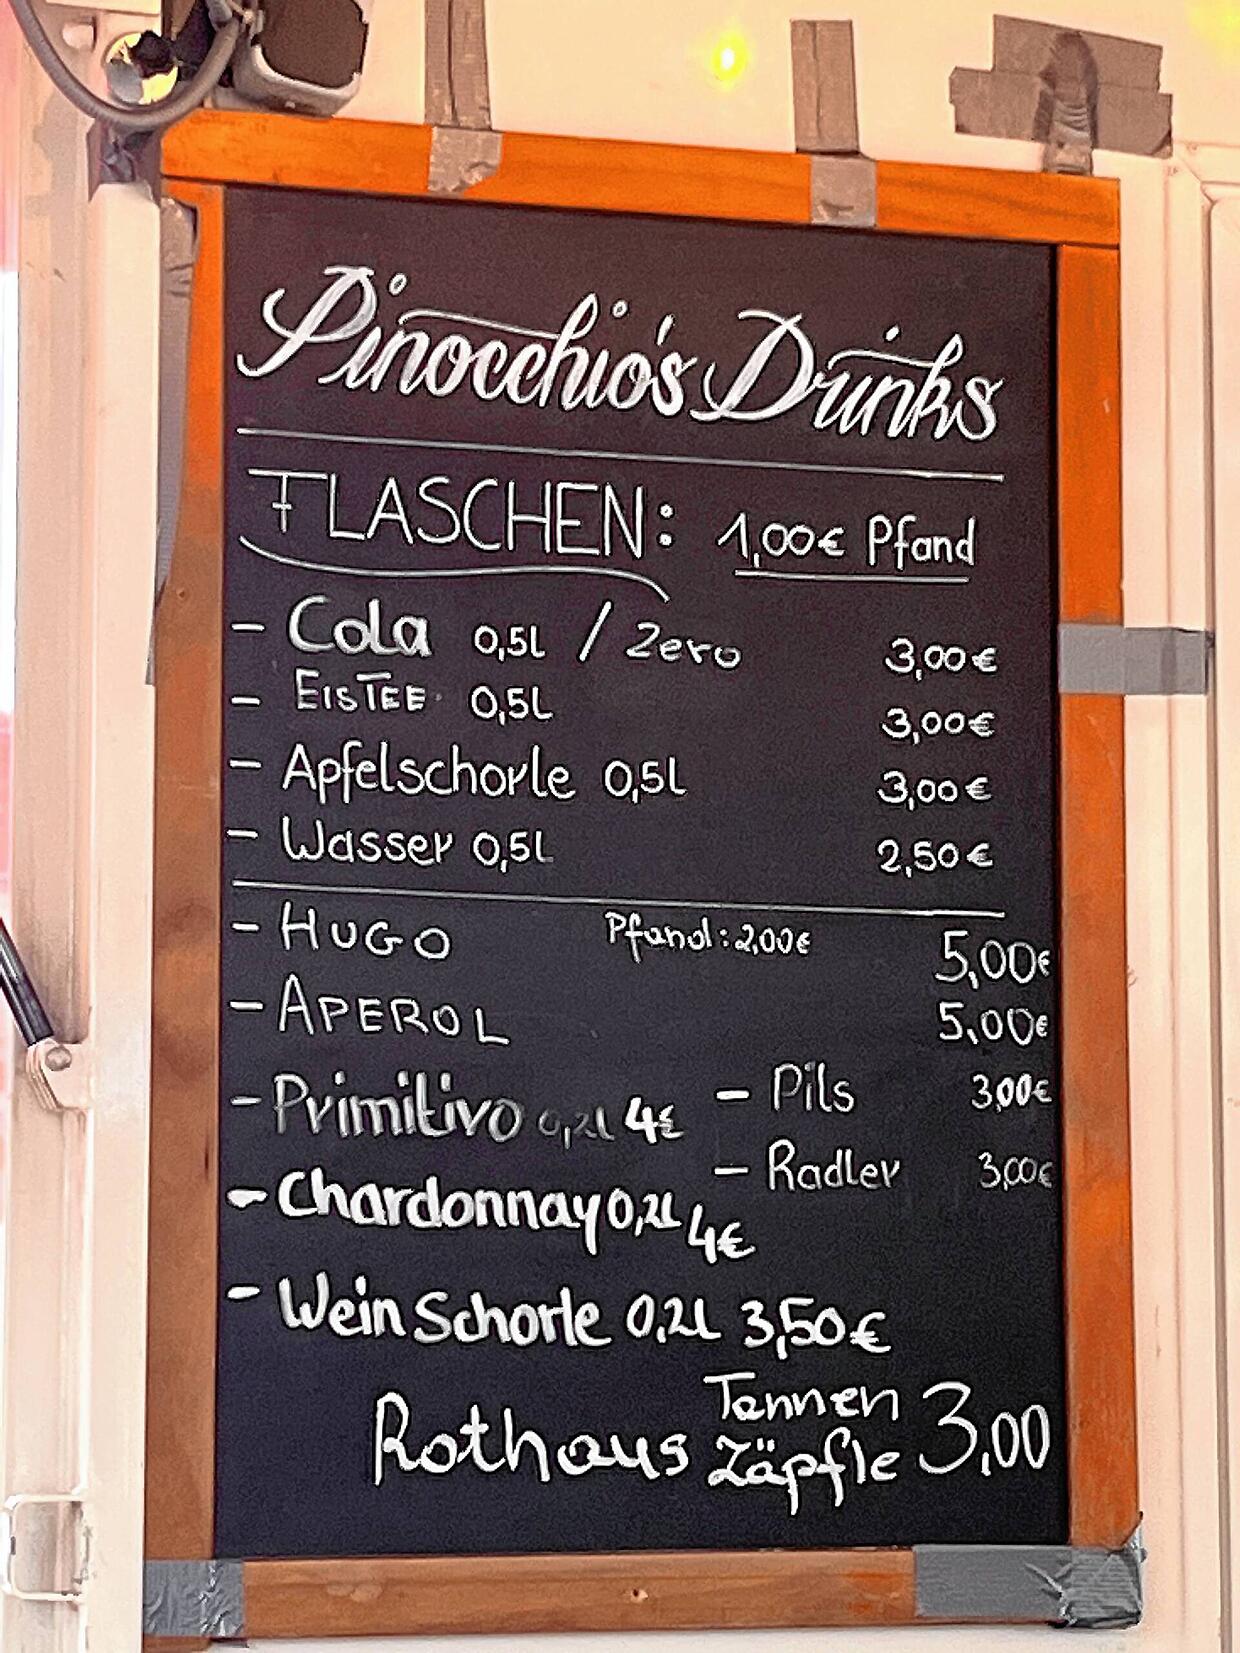 Pinocchio's Drinks
FLASCHEN: 1,00€ Pfand
- Cola 0,5L / Zero 3,00€
- EISTEE 0,5L 3,00€
- Apfelschorle 0,5l 3,00€
- Wasser 0,5L 2,50€
- HUGO Pfand: 2,00€ 5,00€
- APEROL 5,00€
- Primitivo 0,2l 4€ - Pils 3,00€
- Chardonnay 0,2L 4€ - Radler 3,00€
- Wein Schorle 0,2L 3,50€
Rothaus Tannen
Zäpfle 3,00